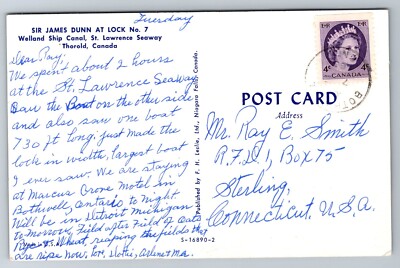 Tuesday
SIR JAMES DUNN AT LOCK No. 7
Welland Ship Canal, St. Lawrence Seaway
Thorold, Canada
Dear Ray:
We spent about 2 hours
at the St. Lawrence Seaway
Saw the Boat on the other side
and also saw one boat
730 ft long. just made the
lock in width, largest boat
I ever saw. We are staying
at Marcus Grove Motel in
Bothwell, Ontario to Night.
Will be in Detroit Michigan
to Morrow, Field after Field of Oats
Rye & Wheat, reaping the fields that
are ripe now. Dottie, Arline & Ma.
Published by F. H. Leslie, Ltd., Niagara Falls, Canada
S-16890-2
4¢ CANADA 4¢
BOT
POST CARD
Address
Mr. Ray E. Smith
R.F.D. 1, Box 75
Sterling,
Connecticut. U.S.A.